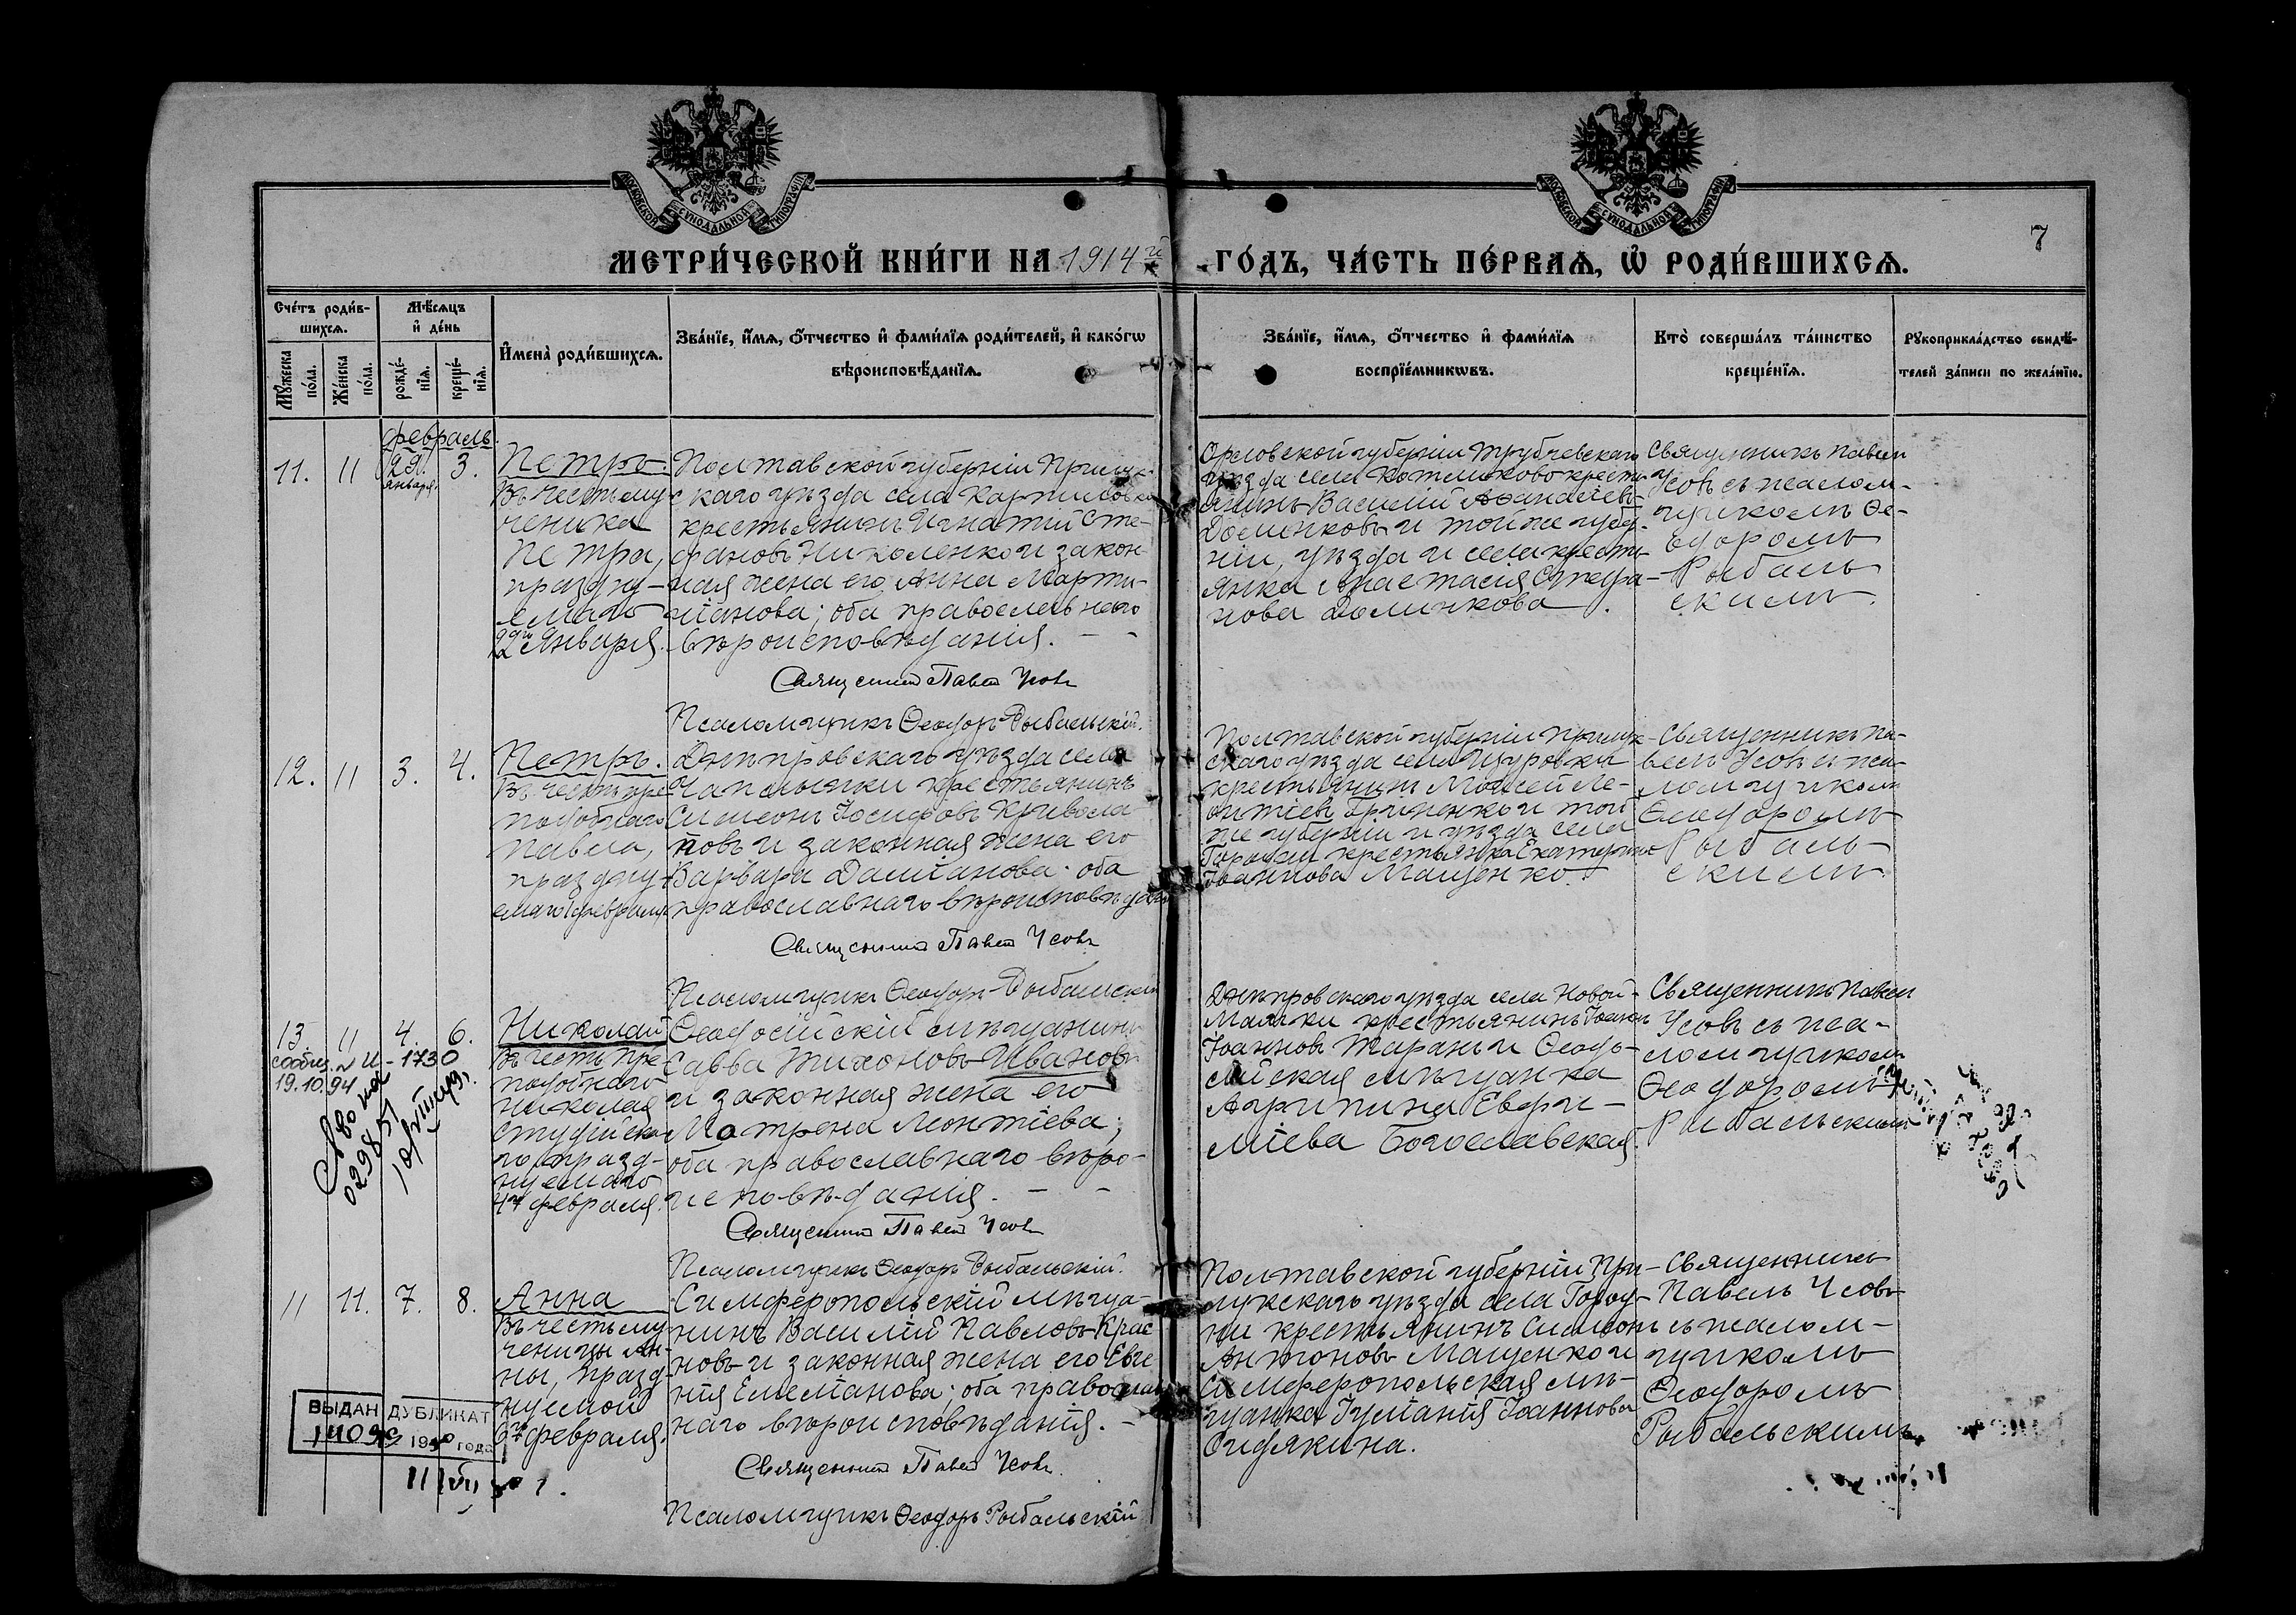 МОСКОВСКОЙ СѴНОДАЛЬНОЙ ТИПОГРАФІИ
МОСКОВСКОЙ СѴНОДАЛЬНОЙ ТИПОГРАФІИ
7
МЕТРИ́ЧЕСКОЙ КНИ́ГИ НА 1914й ГО́ДЪ, ЧА́СТЬ ПЕ́РВАѦ, Ѡ҆ РОДИ́ВШИХСѦ.
Сче́тъ роди́в-
шихсѧ.
Мꙋ́жеска
по́ла.
Же́нска
по́ла.
Мѣ́сѧцъ
и҆ де́нь
рожде́-
нїѧ.
креще́-
нїѧ.
И҆мена̀ роди́вшихсѧ.
Зва́нїе, и҆́мѧ, ѻ҆́тчество и҆ фами́лїѧ роди́телей, и҆ како́гѡ
вѣроисповѣ́данїѧ.
Зва́нїе, и҆́мѧ, ѻ҆́тчество и҆ фами́лїѧ
воспрїе́мникѡвъ.
Кто̀ соверша́лъ та́инство
креще́нїѧ.
Рꙋкоприкла́дство свидѣ́-
телей за́писи по жела́нїю.
февраль.
11. 11 29. января. 3.
Петръ.
Въ честь му-
ченика
Петра,
праздну-
емаго
29го Января.
Полтавской губерніи Прилук-
скаго уѣзда села Карпиловки
крестьянинъ Игнатій Сте-
фановъ Николенко и закон-
ная жена его Анна Марти-
ніанова; оба православнаго
вѣроисповѣданія. - -
Священникъ Павелъ Усовъ
Псаломщикъ Ѳеодоръ Рыбальскій.
Орловской губерніи Трубчевскаго
уѣзда села Котляково кресть-
янинъ Василій Аѳанасіевъ
Доменковъ и той же губер-
ніи, уѣзда и села кресть-
янка Анастасія Стефа-
нова Доменкова.
Священникъ Павелъ
Усовъ съ псалом-
щикомъ Ѳе-
одоромъ
Рыбаль-
скимъ.
12. 11 3. 4.
Петръ.
Въ честь пре-
подобнаго
Павла,
праздну-
емаго февраля
Днѣпровскаго уѣзда села
Чаплынки крестьянинъ
Симеонъ Іосифовъ Кривола-
повъ и законная жена его
Варвара Даміанова; оба
православнаго вѣроисповѣданія
Священникъ Павелъ Усовъ
Псаломщикъ Ѳеодоръ Рыбальскій
Полтавской губерніи Прилук-
скаго уѣзда села Щуровки
крестьянинъ Моисей Ле-
онтіевъ Гриненко и той
же губерніи и уѣзда села
крестьянка Екатерина
Іоаннова Мащенко.
Священникъ Па-
велъ Усовъ съ пса-
ломщикомъ
Ѳеодоромъ
Рыбаль-
скимъ
13. 11 4. 6.
сообщ. № И-1730
19.10.94
029851
Николай
Въ честь пре-
подобнаго
Николая
Студійска-
го, празд-
нуемаго
4го февраля.
Ѳеодосійскій мѣщанинъ
Савва Тихоновъ Ивановъ
и законная жена его
Матрона Леонтіева;
оба православнаго вѣро-
исповѣданія. - -
Священникъ Павелъ Усовъ
Псаломщикъ Ѳеодоръ Рыбальскій.
Днѣпровскаго уѣзда села Новой-
Маячки крестьянинъ Іоаннъ
Іоанновъ Таранъ и Ѳеодо-
сійская мѣщанка
Агрипина Евфи-
міева Богославская.
Священникъ Павелъ
Усовъ съ пса-
ломщикомъ
Ѳеодоромъ
Рыбальскимъ
11 11. 7. 8.
Анна
Въ честь му-
ченицы Ан-
ны, празд-
нуемой
февраля.
Симферопольскій мѣща-
нинъ Василій Павловъ Крас-
новъ и законная жена его Евге-
нія Емеліанова; оба православ-
наго вѣроисповѣданія. -
Священникъ Павелъ Усовъ.
Псаломщикъ Ѳеодоръ Рыбальскій
Полтавской губерніи При-
лукскаго уѣзда села
крестьянинъ Симеонъ
Антоновъ Мащенко и
Симферопольская мѣ-
щанка Іуліанія Іоаннова
Сидякина.
Священникъ
Павелъ Усовъ
съ псалом-
щикомъ
Ѳеодоромъ
Рыбальскимъ
ВЫДАН ДУБЛИКАТ
года